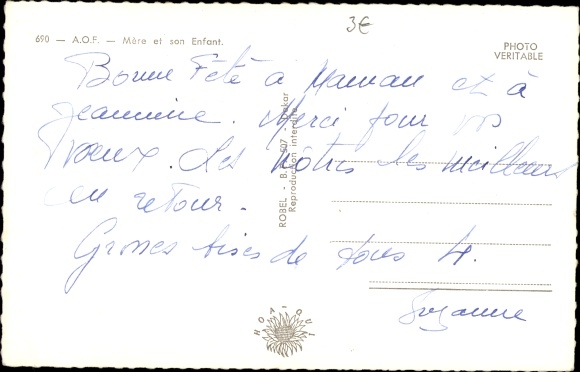 3€
690 — A.O.F. — Mère et son Enfant.
PHOTO
VERITABLE
Bonne Fête à Maman et à
Jeannine. Merci pour vos
Voeux. Les nôtres les meilleurs
en retour.
Grosses bises de tous 4.
Suzanne
ROBEL - B. P.
Reproduction interdite
HOA-QUI